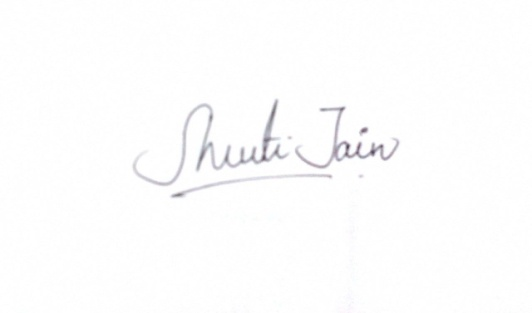 Shruti Jain